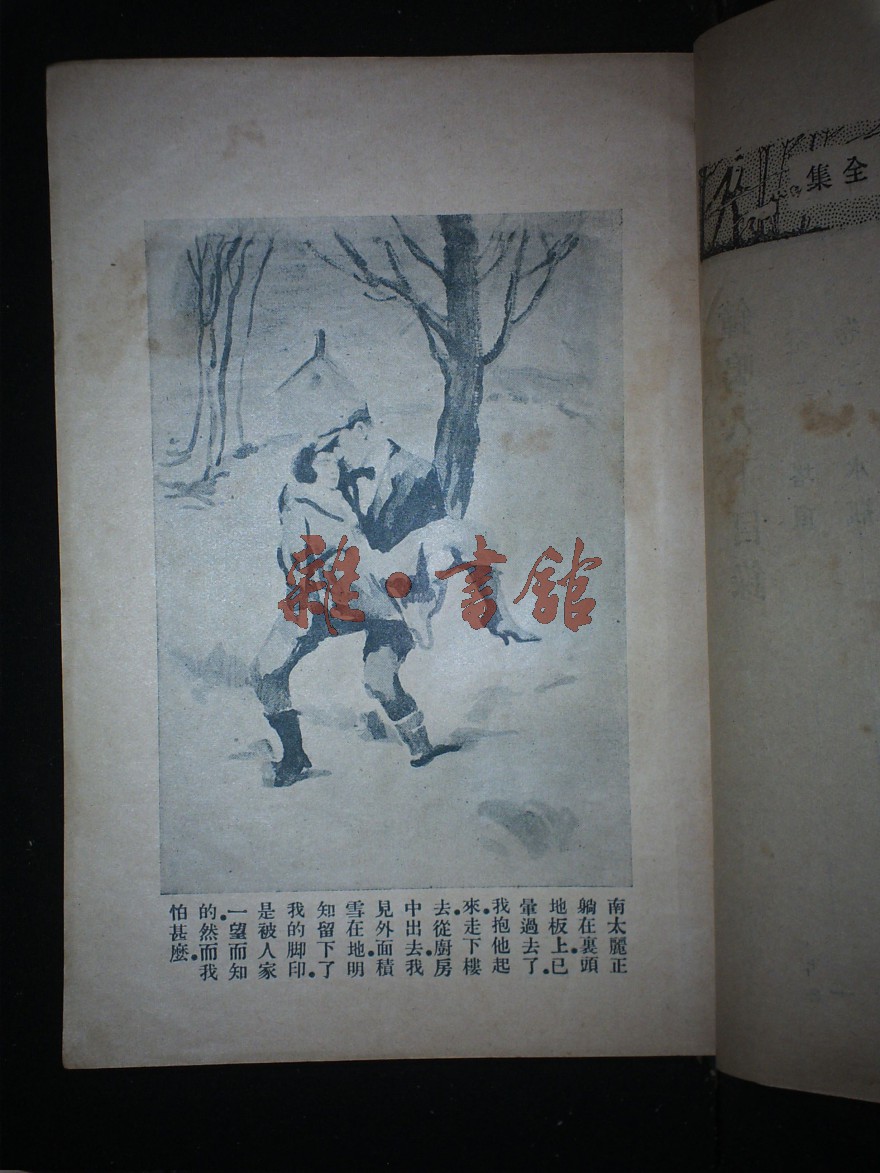 南太麗正
躺在裏頭
地板上.已
暈過去了.
我抱他起
來.走下樓
去.從廚房
中出去.我
見外面積
雪在地.明
知留下了
我的脚印.
是被人家
一望而知
的.然而我
怕甚麼.
雜·書舘
全集